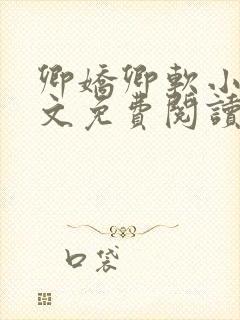 卿嬌卿軟小
文免費閱讀
口袋